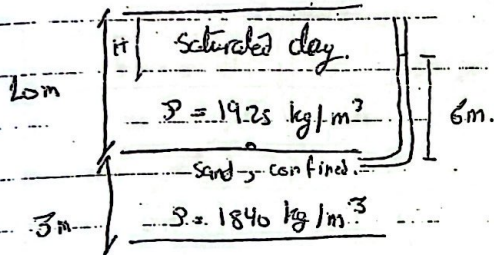 H saturated clay.
20m
ρ = 1925 kg/m³
6m.
Sand → confined.
3m
ρ = 1840 kg/m³